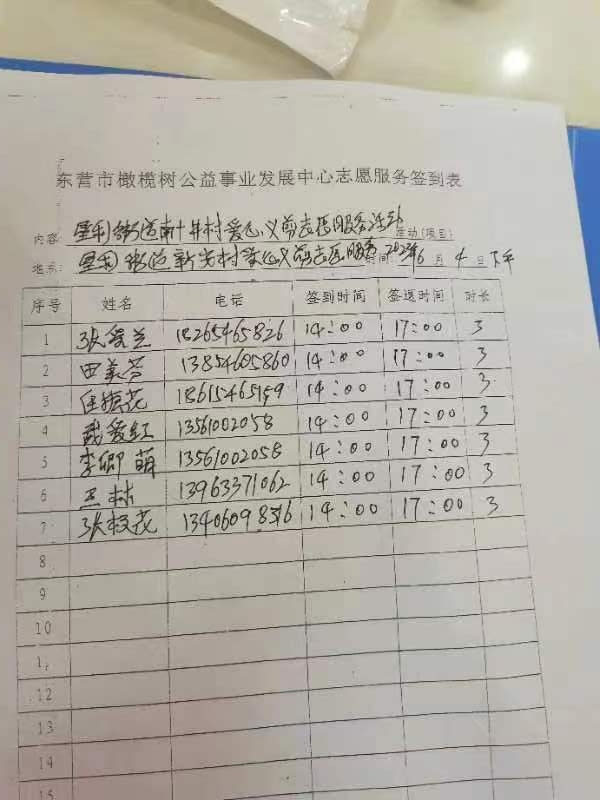 东营市橄榄树公益事业发展中心志愿服务签到表
内容: 垦利街道南十井村爱心义剪志愿服务活动 活动(项目)
地点: 垦利街道 村爱心义剪志愿服务 时间: 2023年6月4日下午
序号 姓名 电话 签到时间 签退时间 时长
1 张爱兰 18265465826 14:00 17:00 3
2 田美芳 13854605860 14:00 17:00 3
3 任振花 14:00 17:00 3
4 武爱红 13561002058 14:00 17:00 3
5 李卿萌 13561002058 14:00 17:00 3
6 王林 13963371062 14:00 17:00 3
7 张校花 13406098316 14:00 17:00 3
8
9
10
1
12
13
14
15